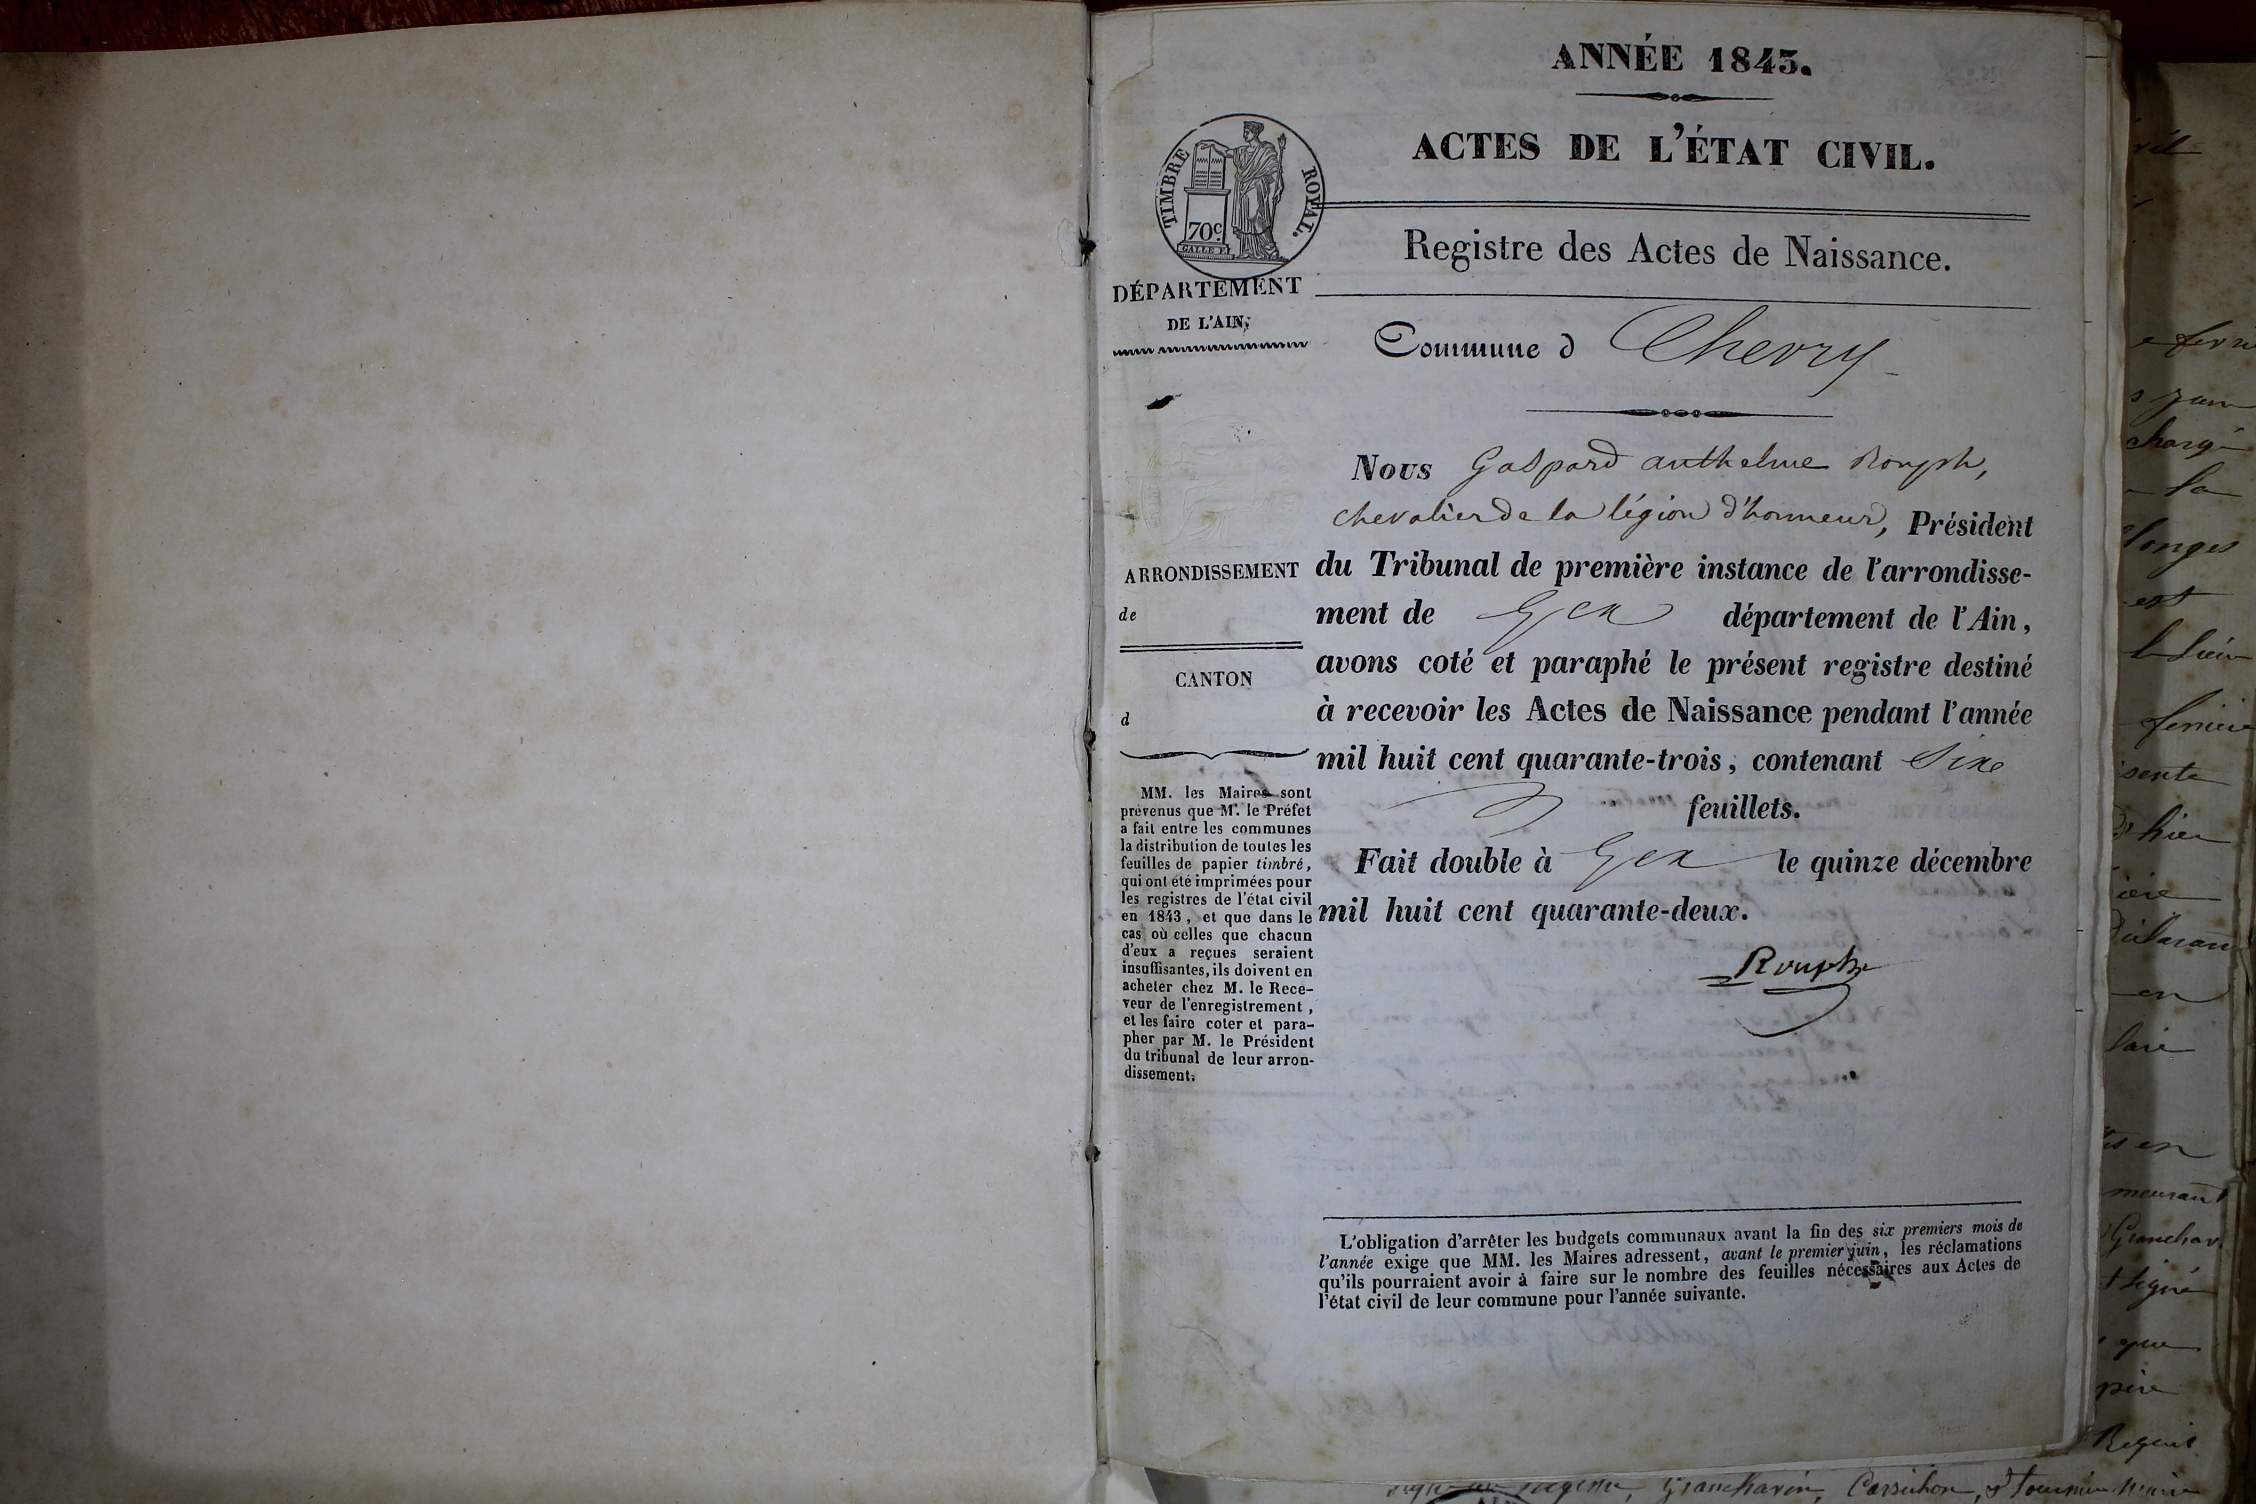 ANNÉE 1843.
ACTES DE L'ÉTAT CIVIL.
TIMBRE ROYAL.
70c.
GALLE F.
Registre des Actes de Naissance.
DÉPARTEMENT
DE L'AIN.
Commune d Chevry
Nous Gaspard anthelme Rouph,
chevalier de la légion d'honneur, Président
du Tribunal de première instance de l'arrondisse-
ment de Gex département de l'Ain,
avons coté et paraphé le présent registre destiné
à recevoir les Actes de Naissance pendant l'année
mil huit cent quarante-trois, contenant Six
feuillets.
Fait double à Gex le quinze décembre
mil huit cent quarante-deux.
Rouph
ARRONDISSEMENT
de
CANTON
d
MM. les Maires sont
prévenus que Mr. le Préfet
a fait entre les communes
la distribution de toutes les
feuilles de papier timbré,
qui ont été imprimées pour
les registres de l'état civil
en 1843, et que dans le
cas où celles que chacun
d'eux a reçues seraient
insuffisantes, ils doivent en
acheter chez M. le Rece-
veur de l'enregistrement,
et les faire coter et para-
pher par M. le Président
du tribunal de leur arron-
dissement.
L'obligation d'arrêter les budgets communaux avant la fin des six premiers mois de
l'année exige que MM. les Maires adressent, avant le premier juin, les réclamations
qu'ils pourraient avoir à faire sur le nombre des feuilles nécessaires aux Actes de
l'état civil de leur commune pour l'année suivante.